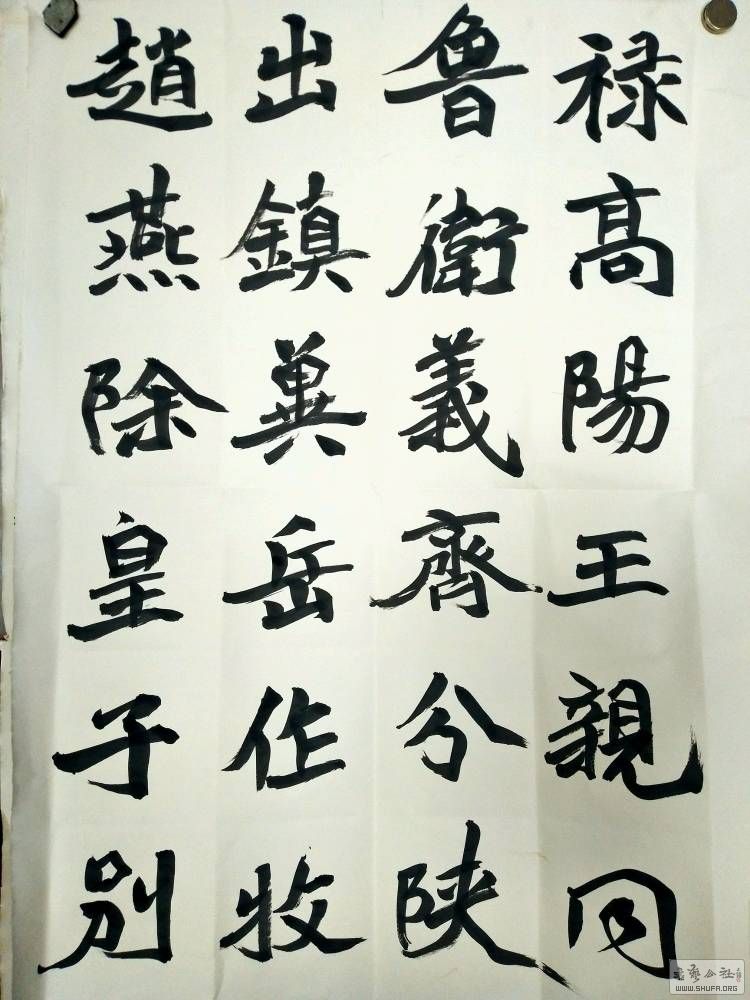 禄高陽王親同
魯衛義齊分陝
出鎮冀岳作牧
趙燕除皇子別
WWW.SHUFA.ORG